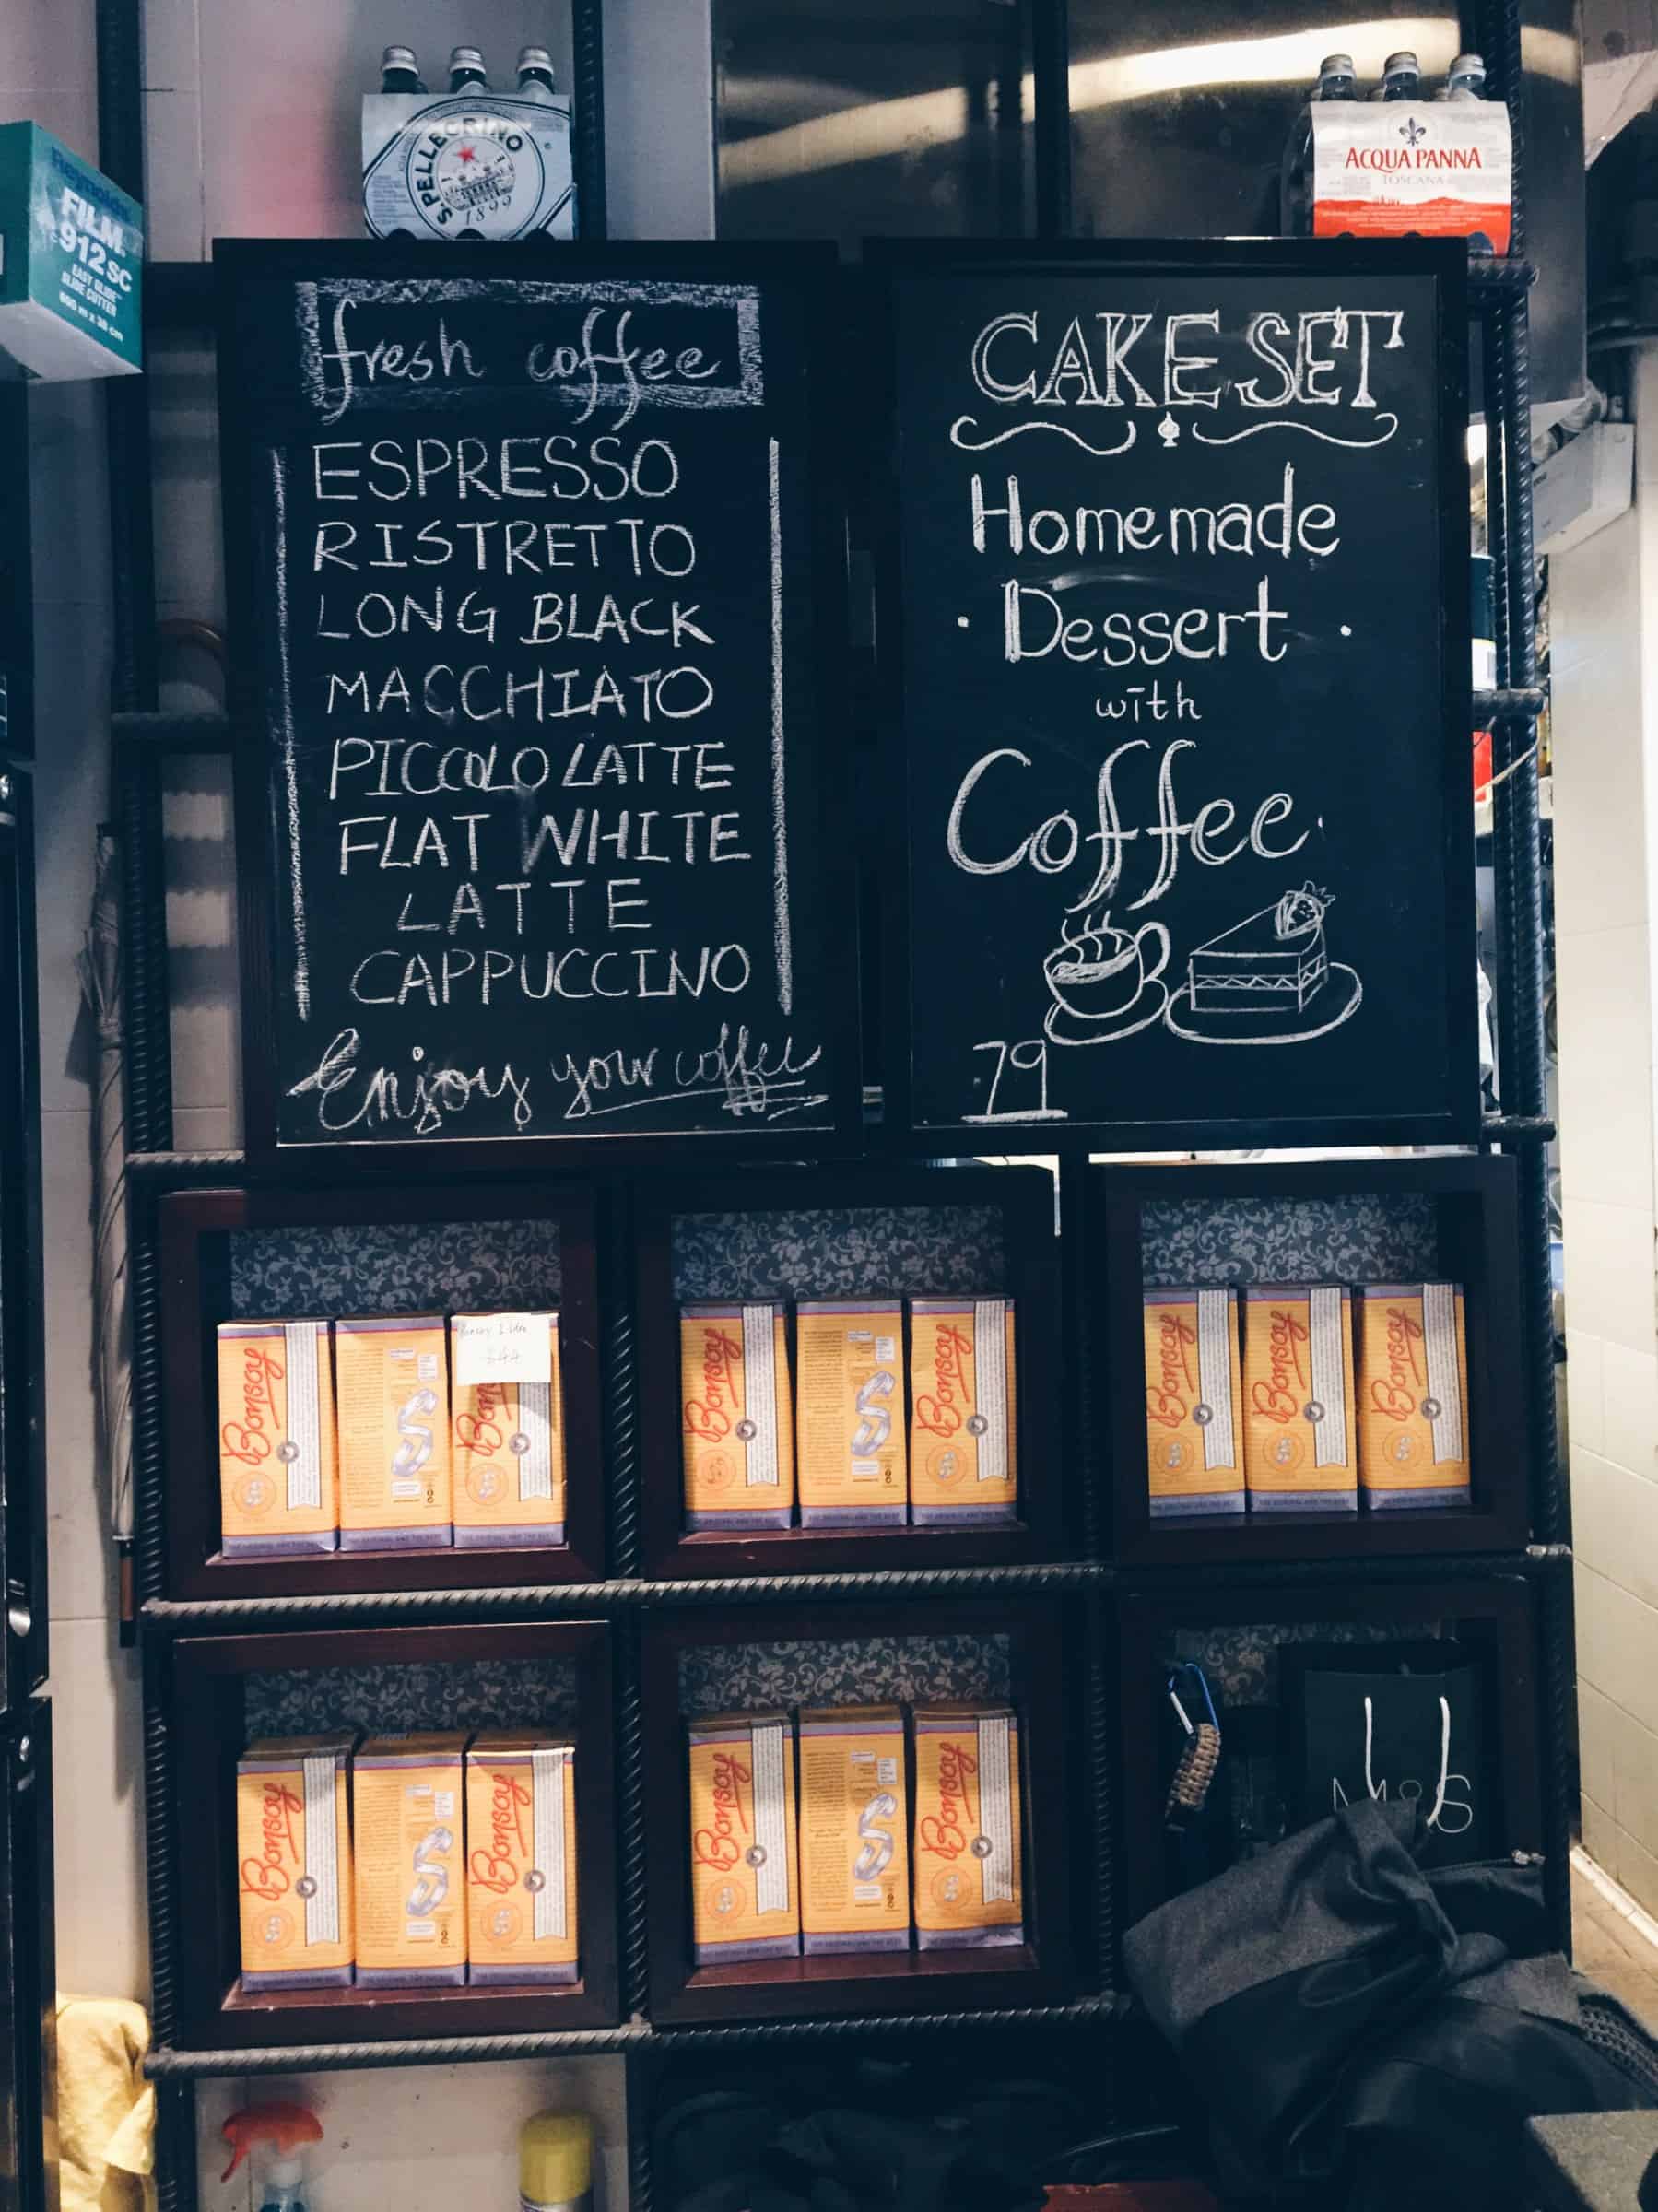 S.PELLEGRINO
1899
ACQUA PANNA
TOSCANA
Reynolds
FILM
912 SC
EASY GLIDE
SLIDE CUTTER
600 m x 30 cm
fresh coffee
ESPRESSO
RISTRETTO
LONG BLACK
MACCHIATO
PICCOLO LATTE
FLAT WHITE
LATTE
CAPPUCCINO
Enjoy your coffee
CAKE SET
Homemade
· Dessert ·
with
Coffee
79
Bonsoy
Bonsoy
Bonsoy
Bonsoy
Bonsoy
Bonsoy
Bonsoy
Bonsoy
Bonsoy
Bonsoy
Bonsoy